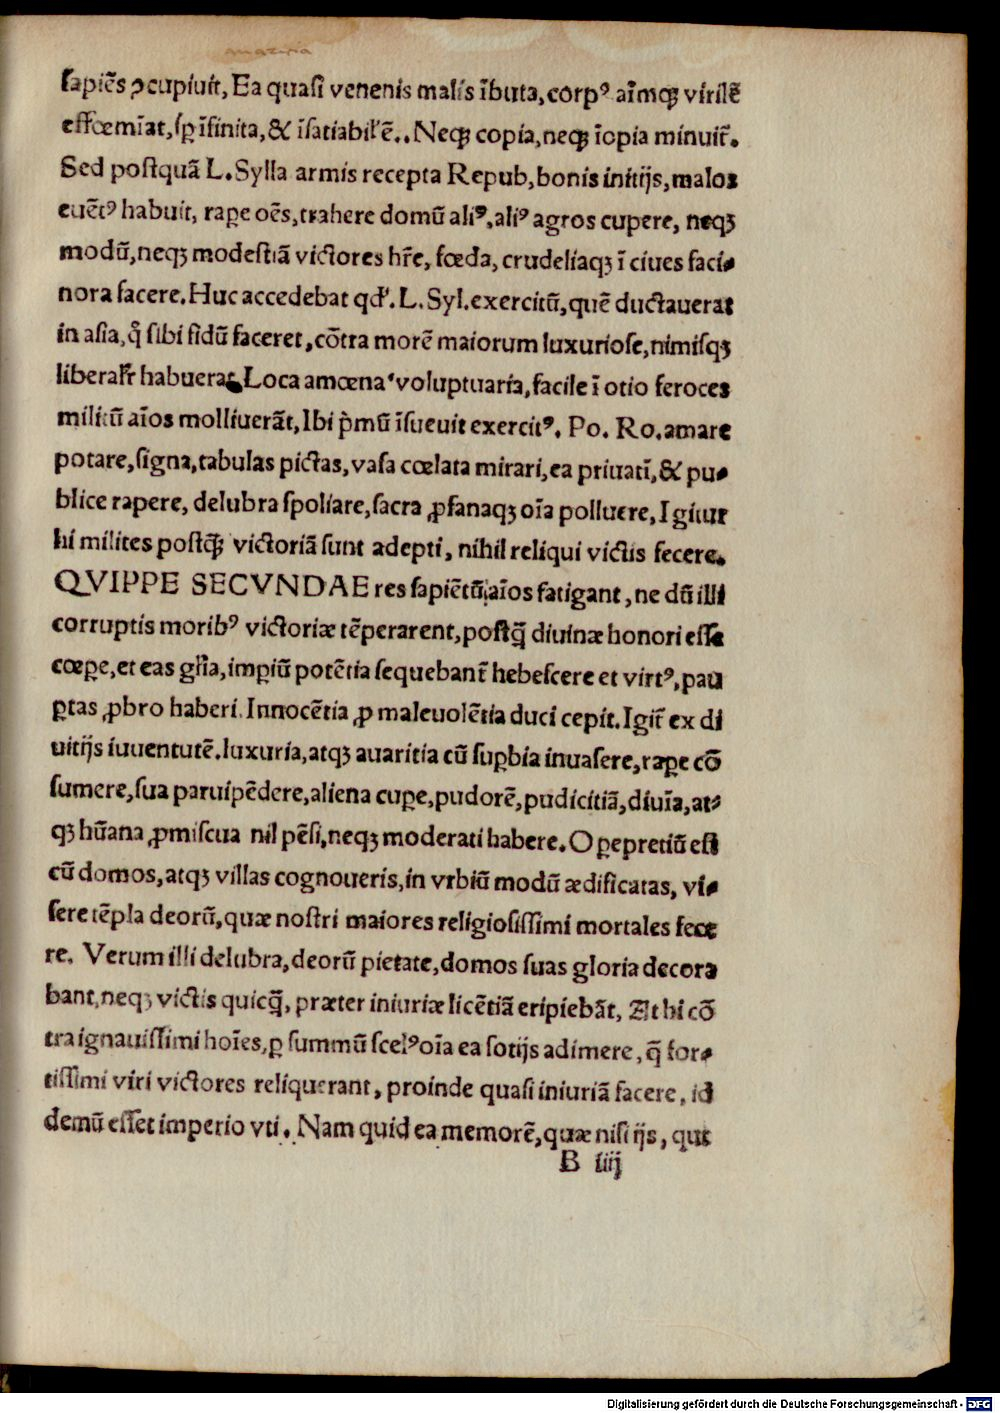 avaritia
sapiēs ↄcupiuit, Ea quasi venenis malis ībuta, corpꝰ aīmqꝫ virilē
effœmīat, sꝑ īfinita, & īsatiabil'ē.. Neqꝫ copia, neqꝫ īopia minuit᷑.
Sed postquā L. Sylla armis recepta Repub, bonis initijs, malos
euētꝰ habuit, raꝑe oēs, trahere domū aliꝰ, aliꝰ agros cupere, neqꝫ
modū, neqꝫ modestiā victores hr̄e, fœda, crudeliaqꝫ ī ciues faci-
nora facere. Huc accedebat qd'. L. Syl. exercitū, quē ductauerat
in asia, q̊ sibi fidū faceret, cōtra morē maiorum luxuriose, nimisqꝫ
liberal'r habuerat, Loca amœna voluptuaria, facile ī otio feroces
militū aīos molliuerāt, Ibi p̀mū īsueuit exercitꝰ. Po. Ro. amare
potare, signa, tabulas pictas, vasa cœlata mirari, ea priuatī, & pu-
blice rapere, delubra spoliare, sacra ꝓfanaqꝫ oīa polluere, Igitur
hi milites postqꝫ̄ victoriā sunt adepti, nihil reliqui victis fecere.
QVIPPE SECVNDAE res sapiētū aīos fatigant, ne dū illi
corruptis moribꝰ victoriæ tēperarent, postq̄ diuinæ honori esse
cœꝑe, et eas gl'ia, impiū potētia sequebant᷑ hebescere et virtꝰ, pau
ꝑtas ꝓbro haberi. Innocētia ꝓ maleuolētia duci cepit. Igit᷑ ex di
uitijs iuuentutē. luxuria, atqꝫ auaritia cū suꝑbia inuasere, raꝑe cō
sumere, sua paruipēdere, aliena cuꝑe, pudorē, pudicitiā, diuīa, at-
qꝫ hūana ꝓmiscua nil pēsi, neqꝫ moderati habere. Oꝑepretiū est
cū domos, atqꝫ villas cognoueris, in vrbiū modū ædificatas, vi-
sere tēpla deorū, quæ nostri maiores religiosissimi mortales fece
re. Verum illi delubra, deorū pietate, domos suas gloria decora
bant, neqꝫ victis quicq̄, præter iniuriæ licētiā eripiebāt, At hi cō
tra ignauissimi hoīes, ꝑ summū scelꝰ oīa ea sotijs adimere, q̄ for-
tissimi viri victores reliquerant, proinde quasi iniuriā facere, id
demū esset imperio vti. Nam quid ea memorē, quæ nisi ijs, qui
B iiij
Digitalisierung gefördert durch die Deutsche Forschungsgemeinschaft - DFG